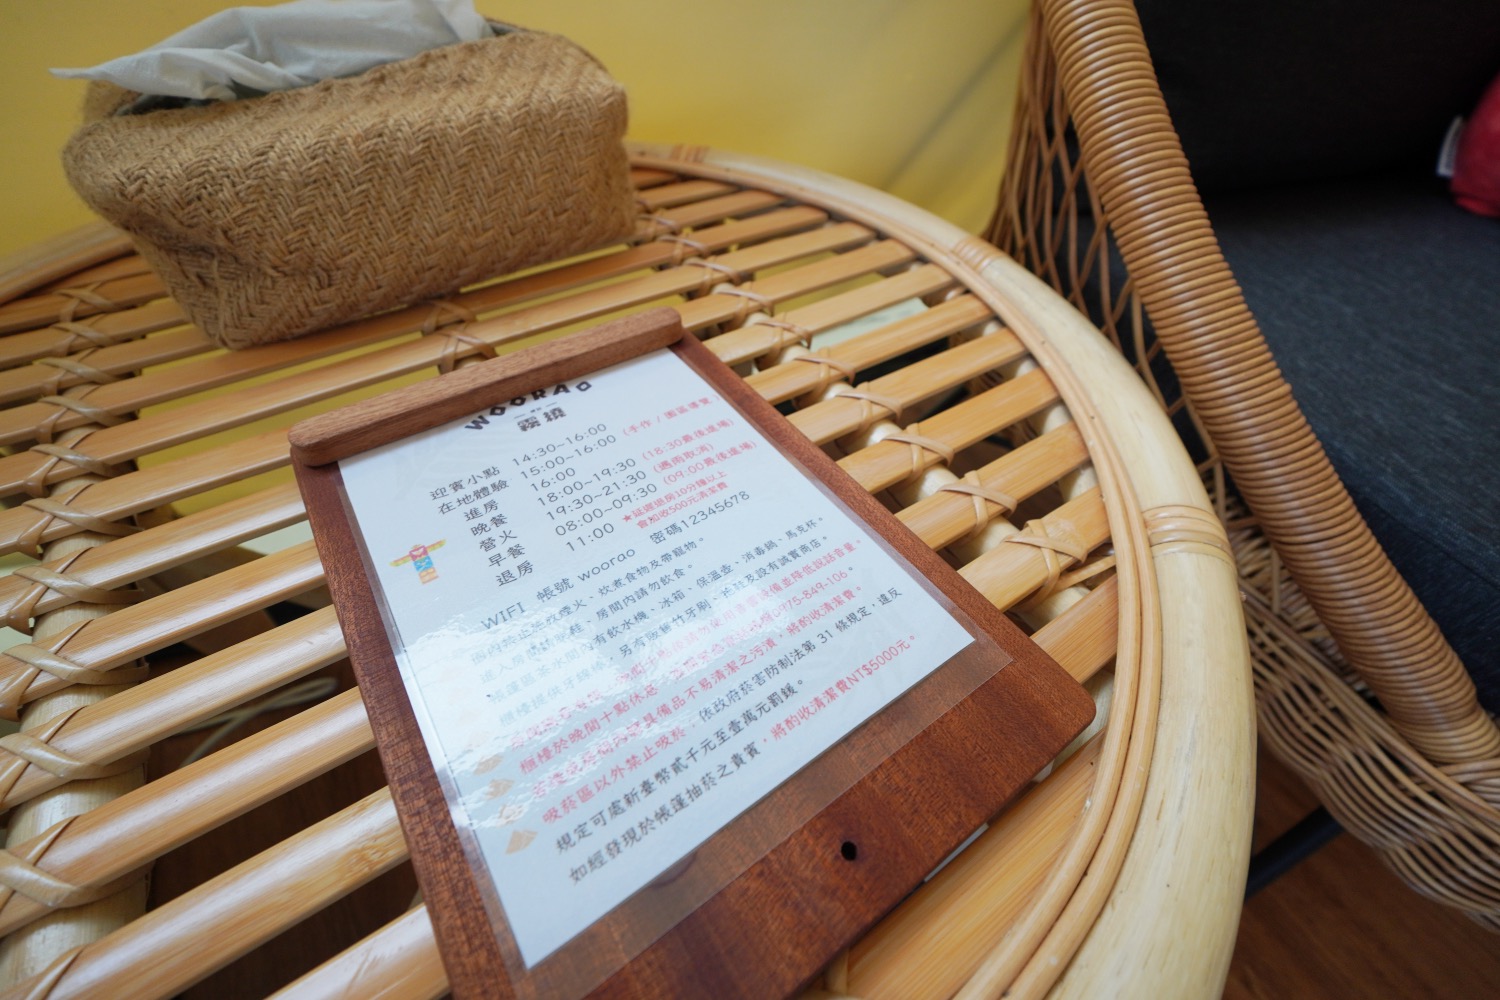 WOORAO
霧繞
迎賓小點 14:30~16:00
在地體驗 15:00~16:00 (手作 / 園區導覽)
進房 16:00
晚餐 18:00~19:30 (18:30最後進場)
營火 19:30~21:30 (遇雨取消)
早餐 08:00~09:30 (09:00最後進場)
退房 11:00 ★延遲退房10分鐘以上
會加收500元清潔費
WIFI 帳號 woorao 密碼12345678
煙火、炊煮食物及帶寵物。
房間內請勿飲食。
有飲水機、冰箱、保溫壺、消毒鍋、馬克杯。
櫃檯提供牙線 另有販售竹牙刷
設備並降低說話音量。
櫃檯於晚間十點休息
備品不易清潔之污漬，將酌收清潔費。
吸菸區以外禁止吸菸，依政府菸害防制法第 31 條規定，違反
規定可處新臺幣貳千元至壹萬元罰鍰。
如經發現於帳篷抽菸之貴賓，將酌收清潔費NT$5000元。